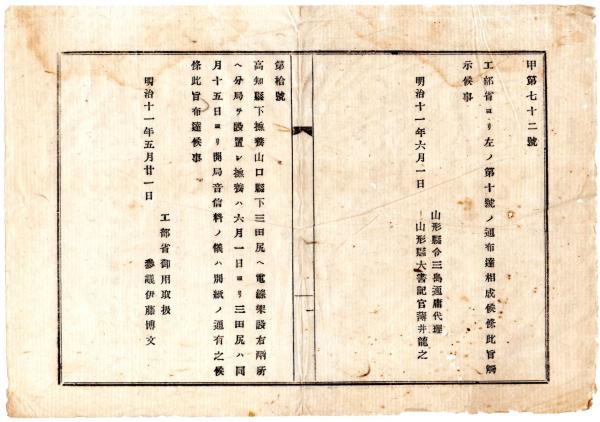 甲第七十二號
工部省ヨリ左ノ第十號ノ通布達相成候條此旨觸
示候事
明治十一年六月一日
山形縣令三島通庸代理
山形縣大書記官薄井龍之
第拾號
高知縣下撫養山口縣下三田尻ヘ電線架設右兩所
ヘ分局ヲ設置シ撫養ハ六月一日ヨリ三田尻ハ同
月十五日ヨリ開局音信料ノ儀ハ別紙ノ通有之候
條此旨布達候事
明治十一年五月廿一日
工部省御用取扱
參議伊藤博文